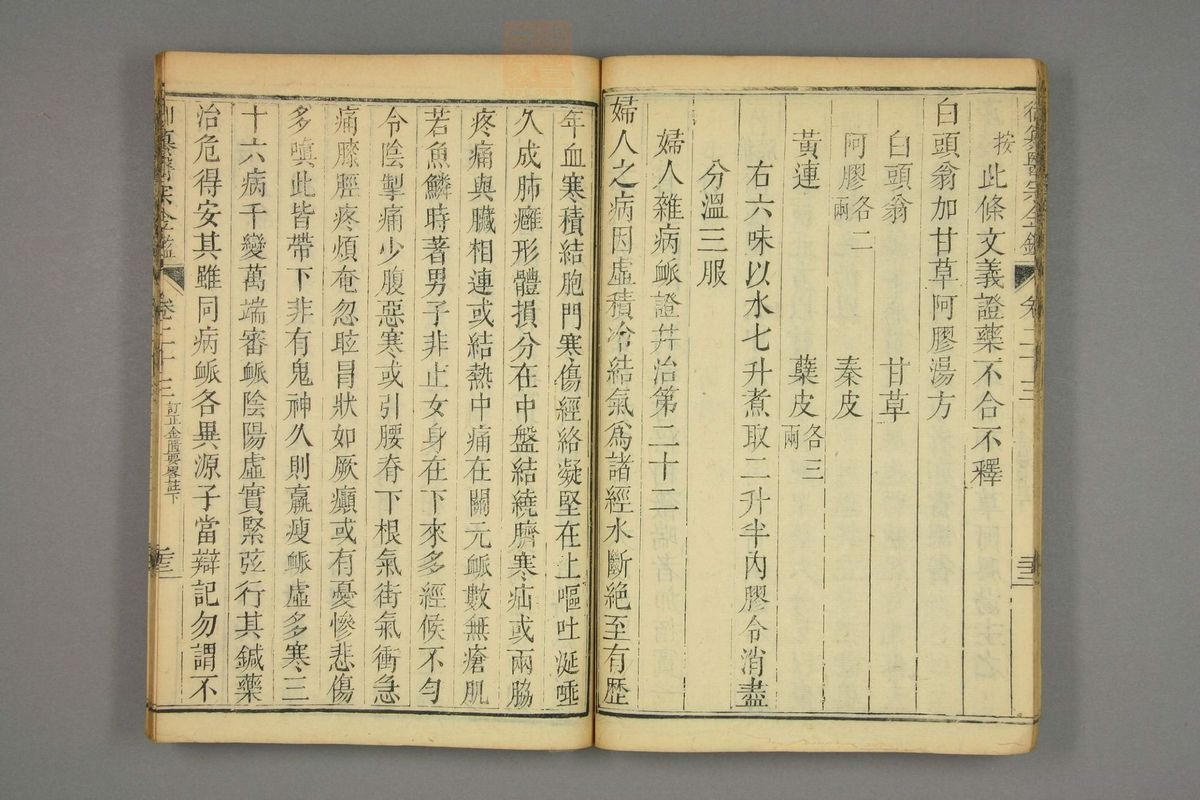 御纂醫宗金鑑 卷二十三
按此條文義證藥不合不釋
白頭翁加甘草阿膠湯方
白頭翁 甘草
阿膠各二兩 秦皮
黃連 蘗皮各三兩
右六味以水七升煮取二升半內膠令消盡
分溫三服
婦人雜病脈證幷治第二十二
婦人之病因虛積冷結氣爲諸經水斷絕至有歷
年血寒積結胞門寒傷經絡凝堅在上嘔吐涎唾
久成肺癰形體損分在中盤結繞臍寒疝或兩脇
疼痛與臟相連或結熱中痛在關元脈數無瘡肌
若魚鱗時著男子非止女身在下來多經候不勻
令陰掣痛少腹惡寒或引腰脊下根氣街氣衝急
痛膝脛疼煩奄忽眩冒狀如厥癲或有憂慘悲傷
多嗔此皆帶下非有鬼神久則羸瘦脈虛多寒三
十六病千變萬端審脈陰陽虛實緊弦行其鍼藥
治危得安其雖同病脈各異源子當辯記勿謂不
卷二十三 訂正金匱要畧註下